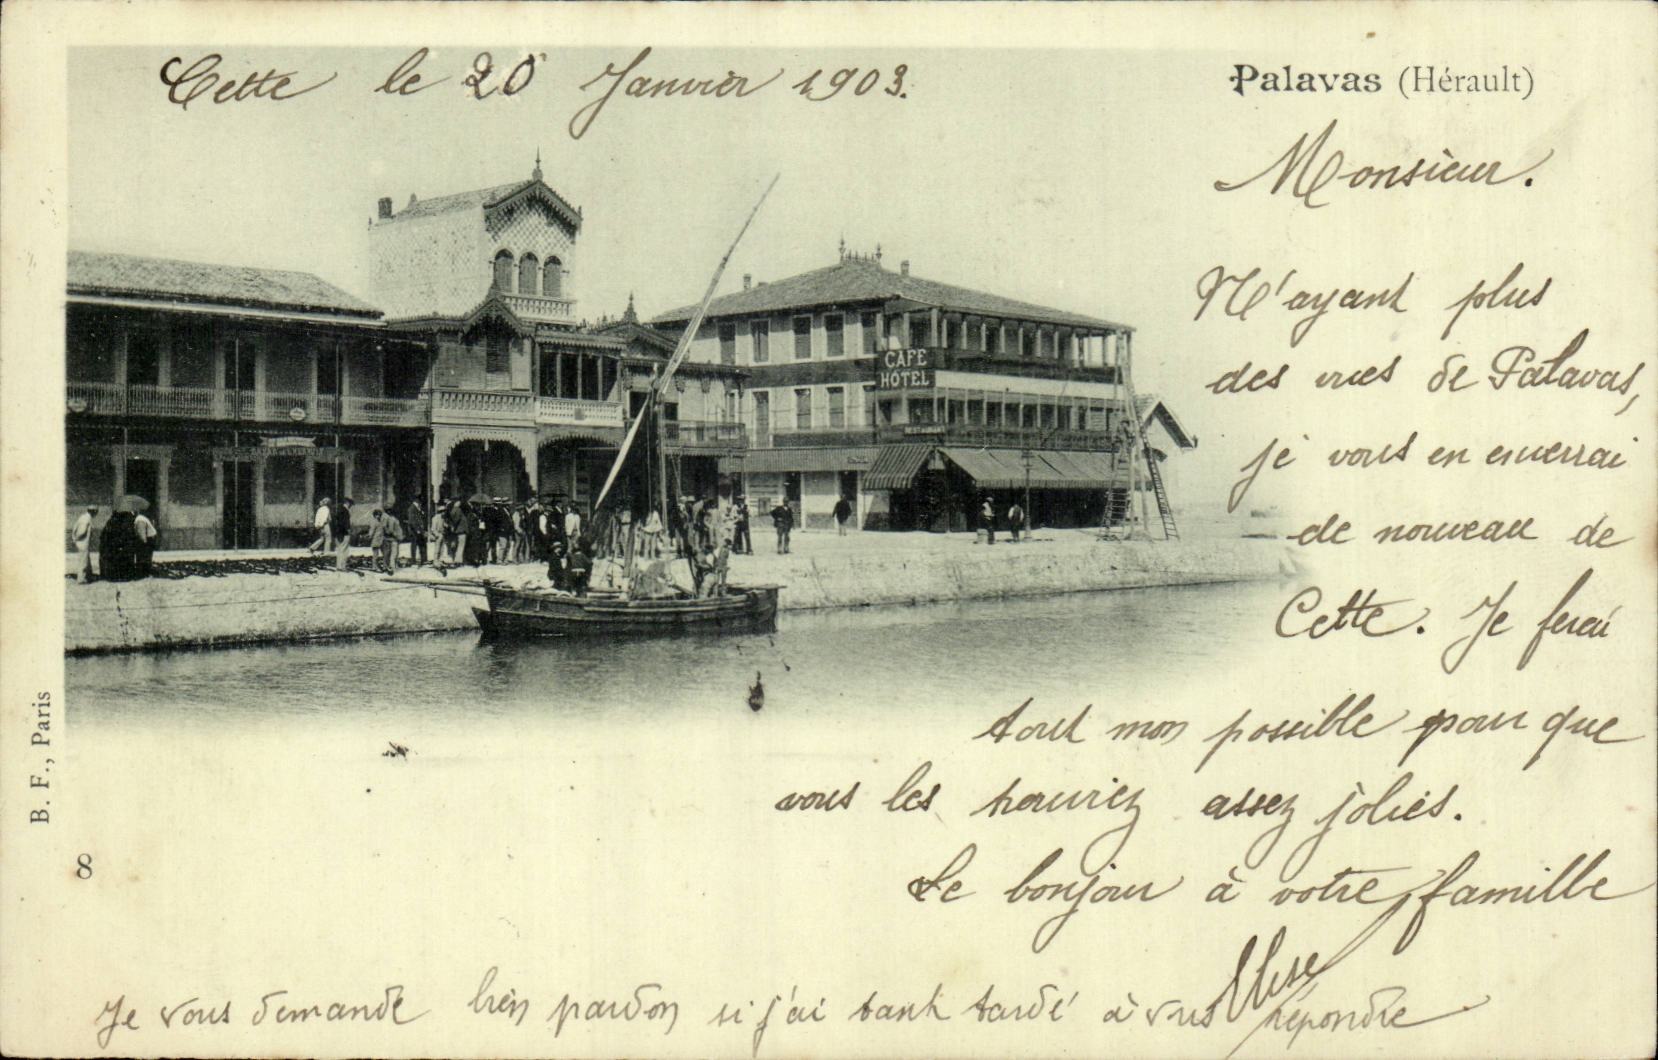 Cette le 20 Janvier 1903.
Palavas (Hérault)
Monsieur.
N'ayant plus
des vues de Palavas,
je vous en enverrai
de nouveau de
Cette. Je ferai
tout mon possible pour que
vous les trouviez assez jolies.
Le bonjour à votre famille
Elise
Je vous demande bien pardon si j'ai tant tardé à vous répondre
CAFE
HÔTEL
RESTAURANT
B. F., Paris
8